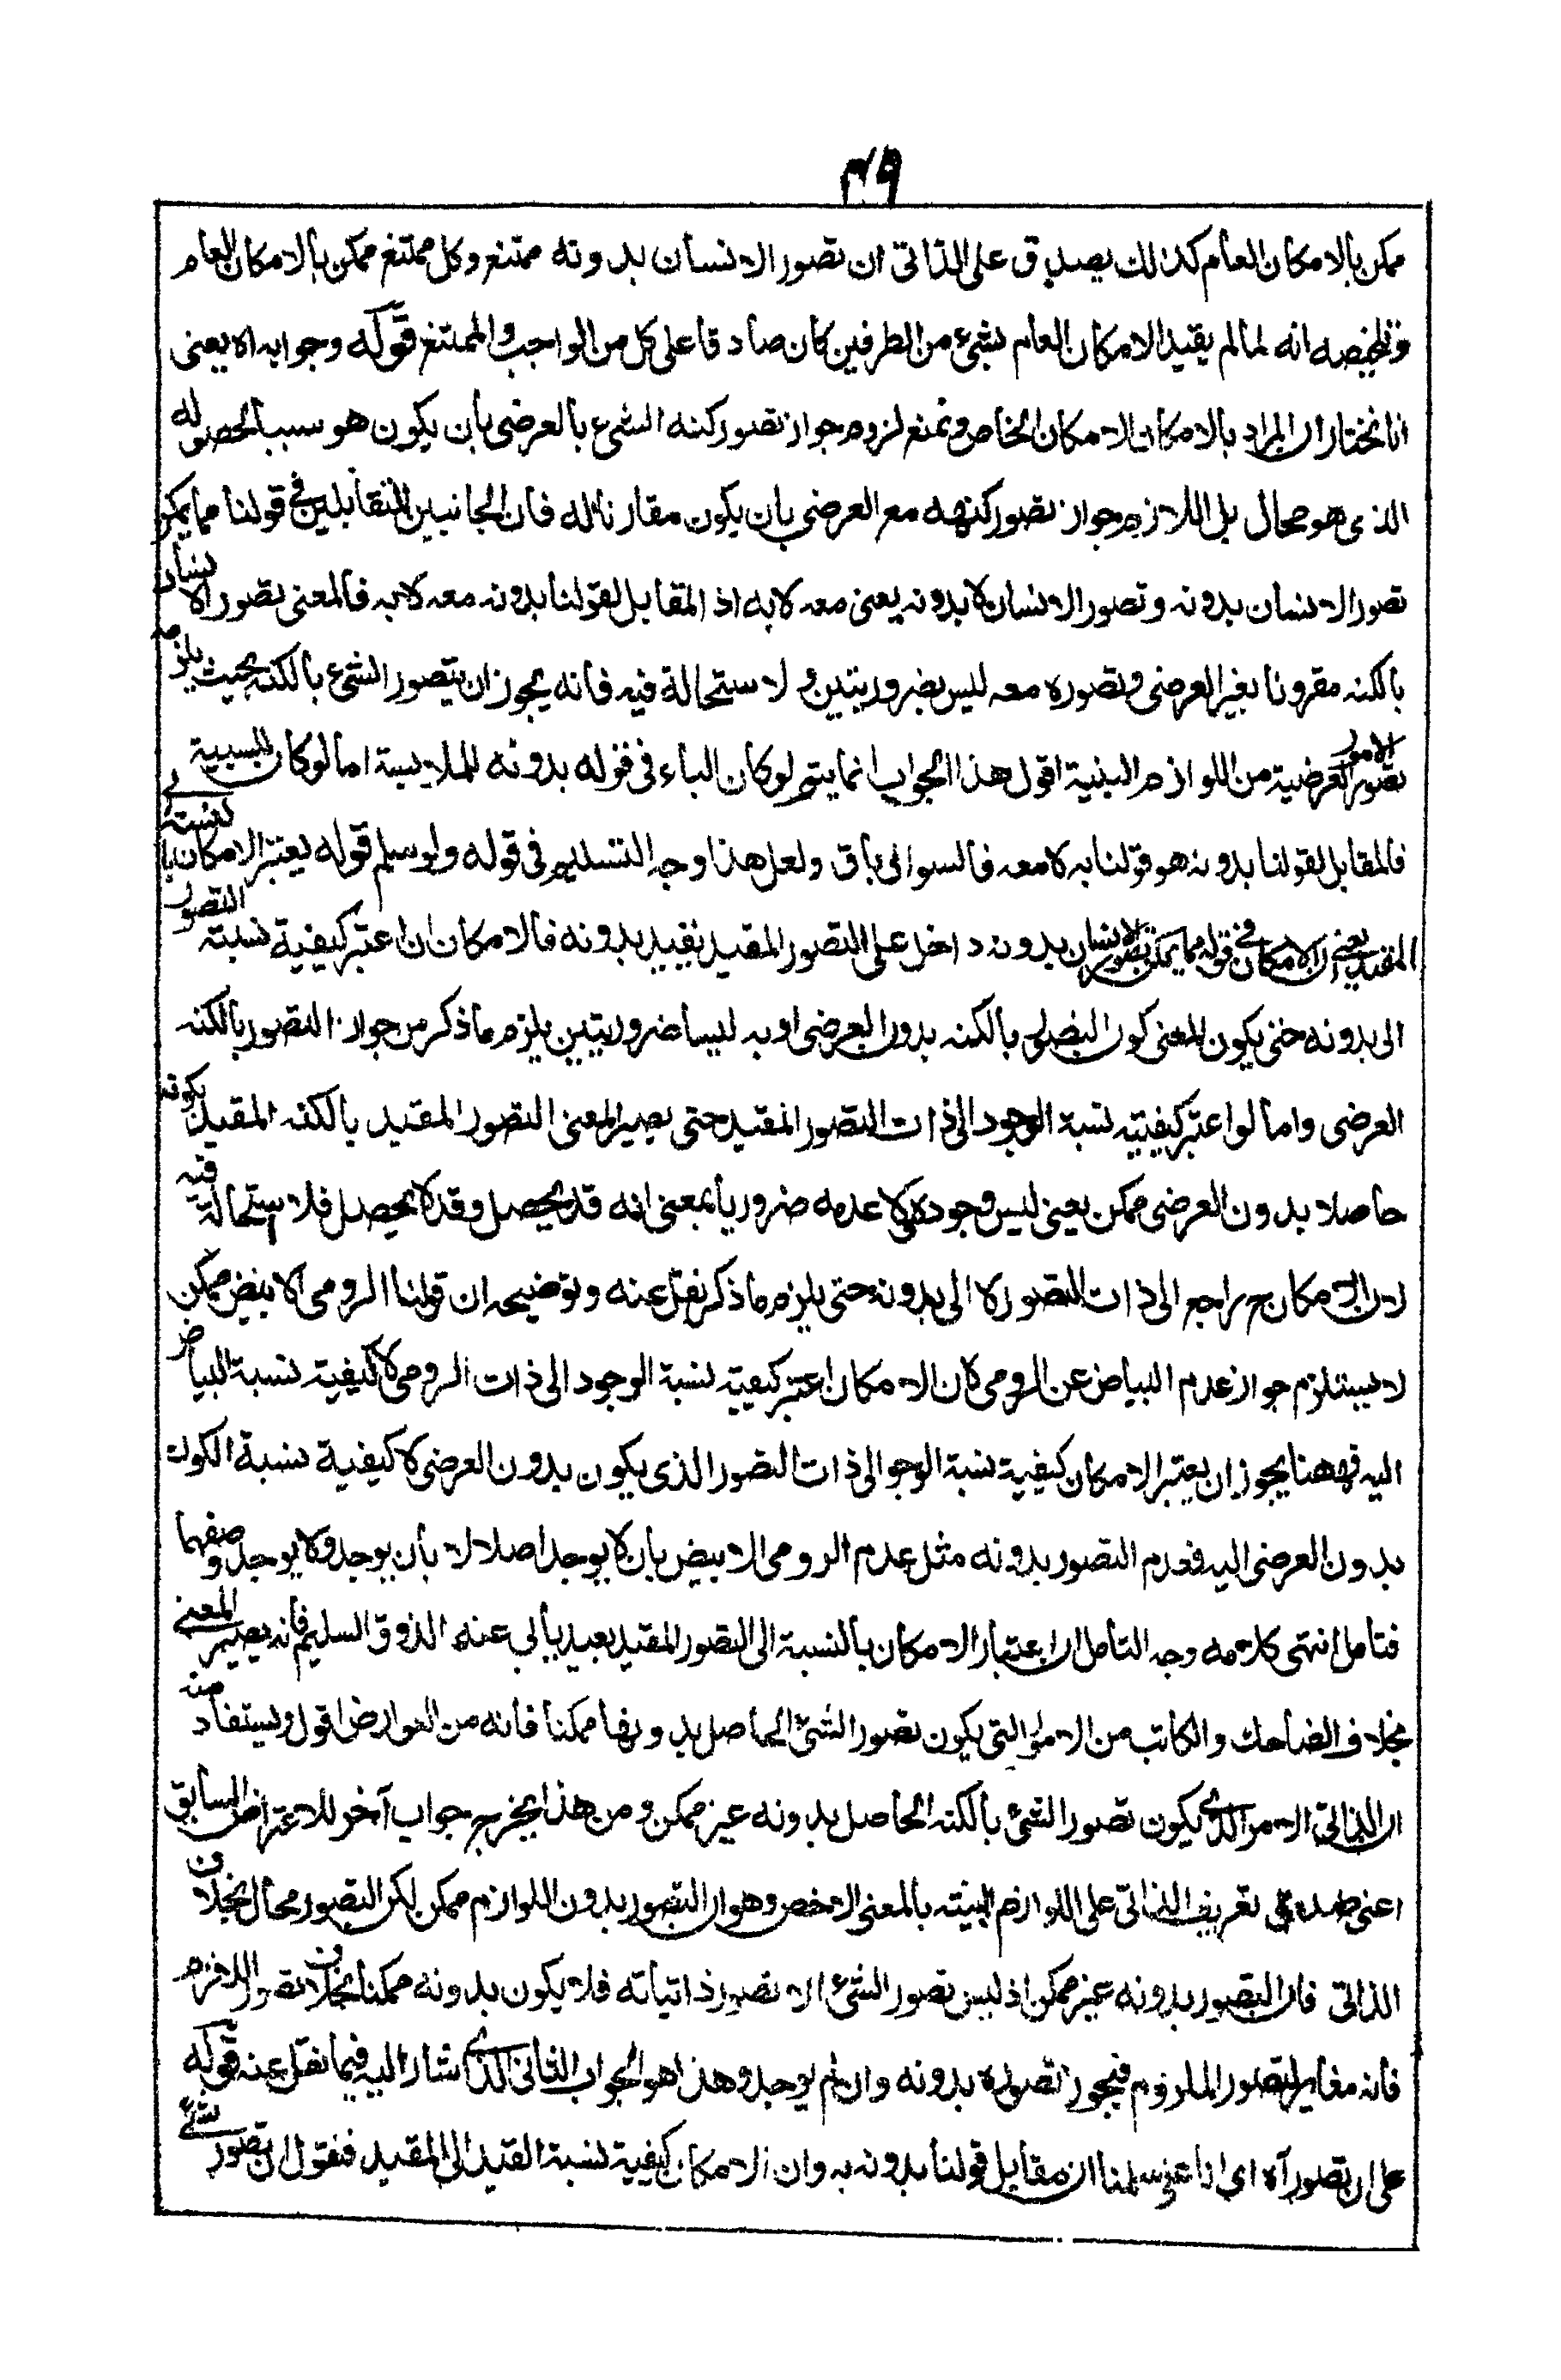 ٣٩
ممكن بالامكان العام كذالك يصدق على الذاتى ان تصور الانسان بدونه ممتنع وكل ممتنع ممكن بالامكان العام
وتلخيصه انه لما لم يقيد الامكان العام بشىء من الطرفين كان صادقا على كل من الواجب والممتنع قوله وجوابه اه يعنى
انا نختار ان المراد بالامكان الامكان الخاص ونمنع لزوم جواز تصور كنه الشىء بالعرضى بان يكون هو سببا لحصوله
الذى هو محال بل اللازم جواز تصور كنهه مع العرضى بان يكون مقارنا له فان الجانبين المتقابلين فى قولنا مما يمكن
تصور الانسان بدونه وتصور الانسان لا بدونه يعنى معه لا به اذ المقابل لقولنا بدونه معه لا به فالمعنى تصور الانسان
بالكنه مقرونا بغير العرضى وتصوره معه ليس بضروريتين ولا ستحالة فيه فانه يجوز ان يتصور الشىء بالكنه بحيث يلزمه
تصور الامور العرضية من اللوازم البينية اقول هذا الجواب انما يتم لو كان الباء فى قوله بدونه للملابسة اما لو كان للسببية
فالمقابل لقولنا بدونه هو قولنا به لا معه فالسوال باق ولعل هذا وجه التسليم فى قوله ولو سلم قوله يعتبر الامكان بالنسبة الى
المقيد يعنى ان الامكان فى قوله مما يمكن تصور الانسان بدونه داخل على التصور المقيد بقيد بدونه فالامكان ان اعتبر كيفية نسبته التصور
الى بدونه حتى يكون المعنى كون التصور بالكنه بدون العرضى او به ليسا ضروريتين يلزم ما ذكر من جواز التصور بالكنه
العرضى واما لو اعتبر كيفيته نسبة الوجود الى ذات التصور المقيد حتى يصير المعنى التصور المقيد بالكنه المقيد بكونه
حاصلا بدون العرضى ممكن يعنى ليس وجوده ولا عدمه ضروريا بمعنى انه قد يحصل وقد لا يحصل فلا استحالة فيه
لان الامكان ح راجع الى ذات التصور لا الى بدونه حتى يلزم ما ذكر نقل عنه وتوضيحه ان قولنا الرومى الابيض ممكن
لا يستلزم جواز عدم البياض عن الرومى لان الامكان اعتبر كيفية نسبة الوجود الى ذات الرومى لا كيفية نسبة البياض
اليه فههنا يجوز ان يعتبر الامكان كيفية نسبة الوجو الى ذات التصور الذى يكون بدون العرضى لا كيفية نسبة الكون
بدون العرضى اليه فعدم التصور بدونه مثل عدم الرومى الابيض بان لا يوجد اصلا لا بان يوجد ولا يوجد وصفهما
فتامل انتهى كلامه وجه التامل ان اعتبار الامكان بالنسبة الى التصور المقيد بعيد يأبى عنه الذوق السليم فانه يصير المعنى
بخلاف الضاحك والكاتب من الامور التى يكون تصور الشىء الحاصل بدونها ممكنا فانه من العوارض اقول ويستفاد منه
ان الذاتى الامر الذى يكون تصور الشىء بالكنه الحاصل بدونه غير ممكن ومن هذا يخرج جواب آخر للاعتراض السابق
اعنى صدق تعريف الذاتى على اللوازم البينته بالمعنى الاخص وهو ان التصور بدون اللوازم ممكن لكن التصور محال بخلاف
الذاتى فان التصور بدونه غير ممكن اذ ليس تصور الشىء الا تصور ذاتياته فلا يكون بدونه ممكنا بخلاف تصور اللازم
فانه مغاير لتصور الملزوم فيجوز تصوره بدونه وان لم يوجد وهذا هو الجواب الثانى الذى اشار اليه فيما نقل عنه قوله
على ان تصور آه اى انا سلمنا ان مقابل قولنا بدونه به وان الامكان كيفية نسبة القيد الى المقيد فنقول ان تصور شىء